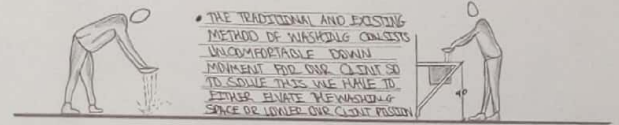 • THE TRADITIONAL AND EXISTING
METHOD OF WASHING CONSISTS
UNCOMFORTABLE DOWN
MOVMENT FOR OUR CLINT SO
TO SOLVE THIS WE HAVE TO
EITHER ELVATE THE WASHING
SPACE OR LOWER OUR CLINT POSITION